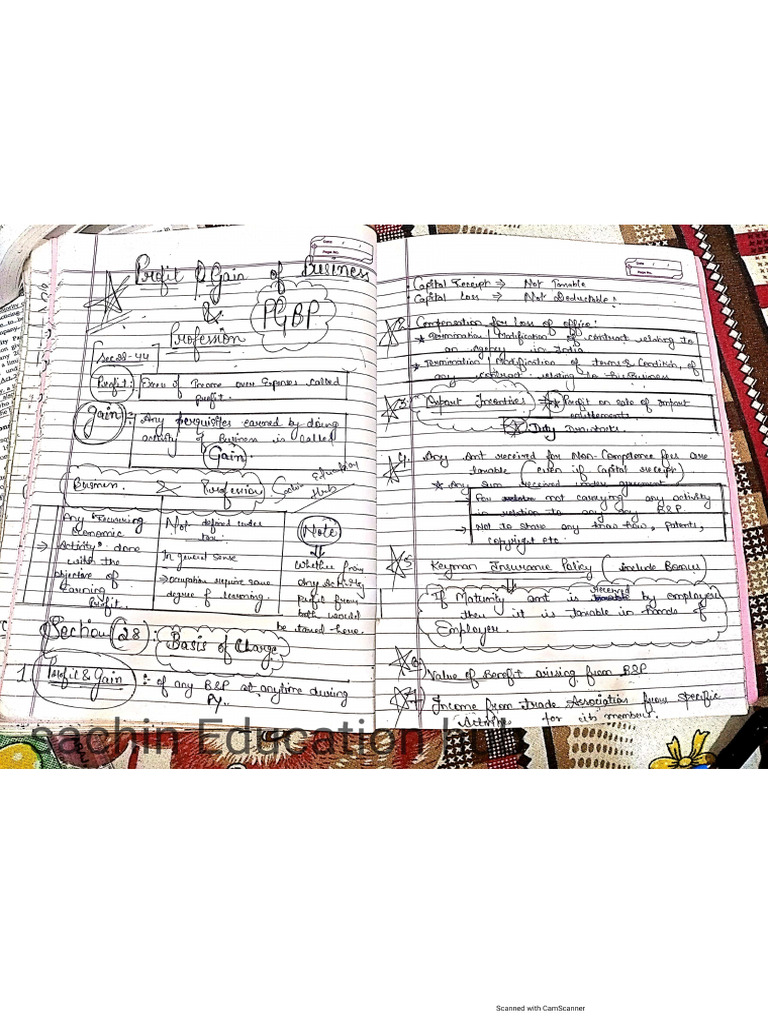 Profit & Gain of Business
&
Profession
PGBP
Sec 28-44
Profit: Excess of Income over Expenses called
profit.
Gain: Any perquisites earned by doing
activity of Business is called
Gain.
Business & Profession
Sachin Education
Hub
Any
economic
activity done
with the
objective of
earning
Profit.
Not defined under
tax.
In general sense
→ occupation require some
degree of learning.
Note
Whether from
any activity
profit from
both would
be taxed here.
Section 28: Basis of Charge
1. Profit & Gain : of any B&P at anytime during
P.Y.
Capital Receipt ⇒ Not Taxable
Capital Loss ⇒ Not Deductable.
2. Compensation for Loss of office:
* Termination / Modification of contract relating to
an agency in India
* Termination / Modification of terms & Condition, of
any contract relating to the Business
3. Export Incentives → * Profit on sale of Import
entitlements
* Duty Drawback.
4. Any Amt received for Non-Competence fees are
taxable (even if Capital receipt)
* Any sum received under agreement
For not carrying any activity
in relation to any B&P
→ Not to share any know how, Patents,
copyright etc.
5 Keyman Insurance Policy (include Bonus)
If Maturity amt is received by employer
then it is taxable in hands of
Employer.
6 Value of Benefit arising from B&P
7 Income from Trade Association from specific
service for its member.
sachin Education hub
Scanned with CamScanner